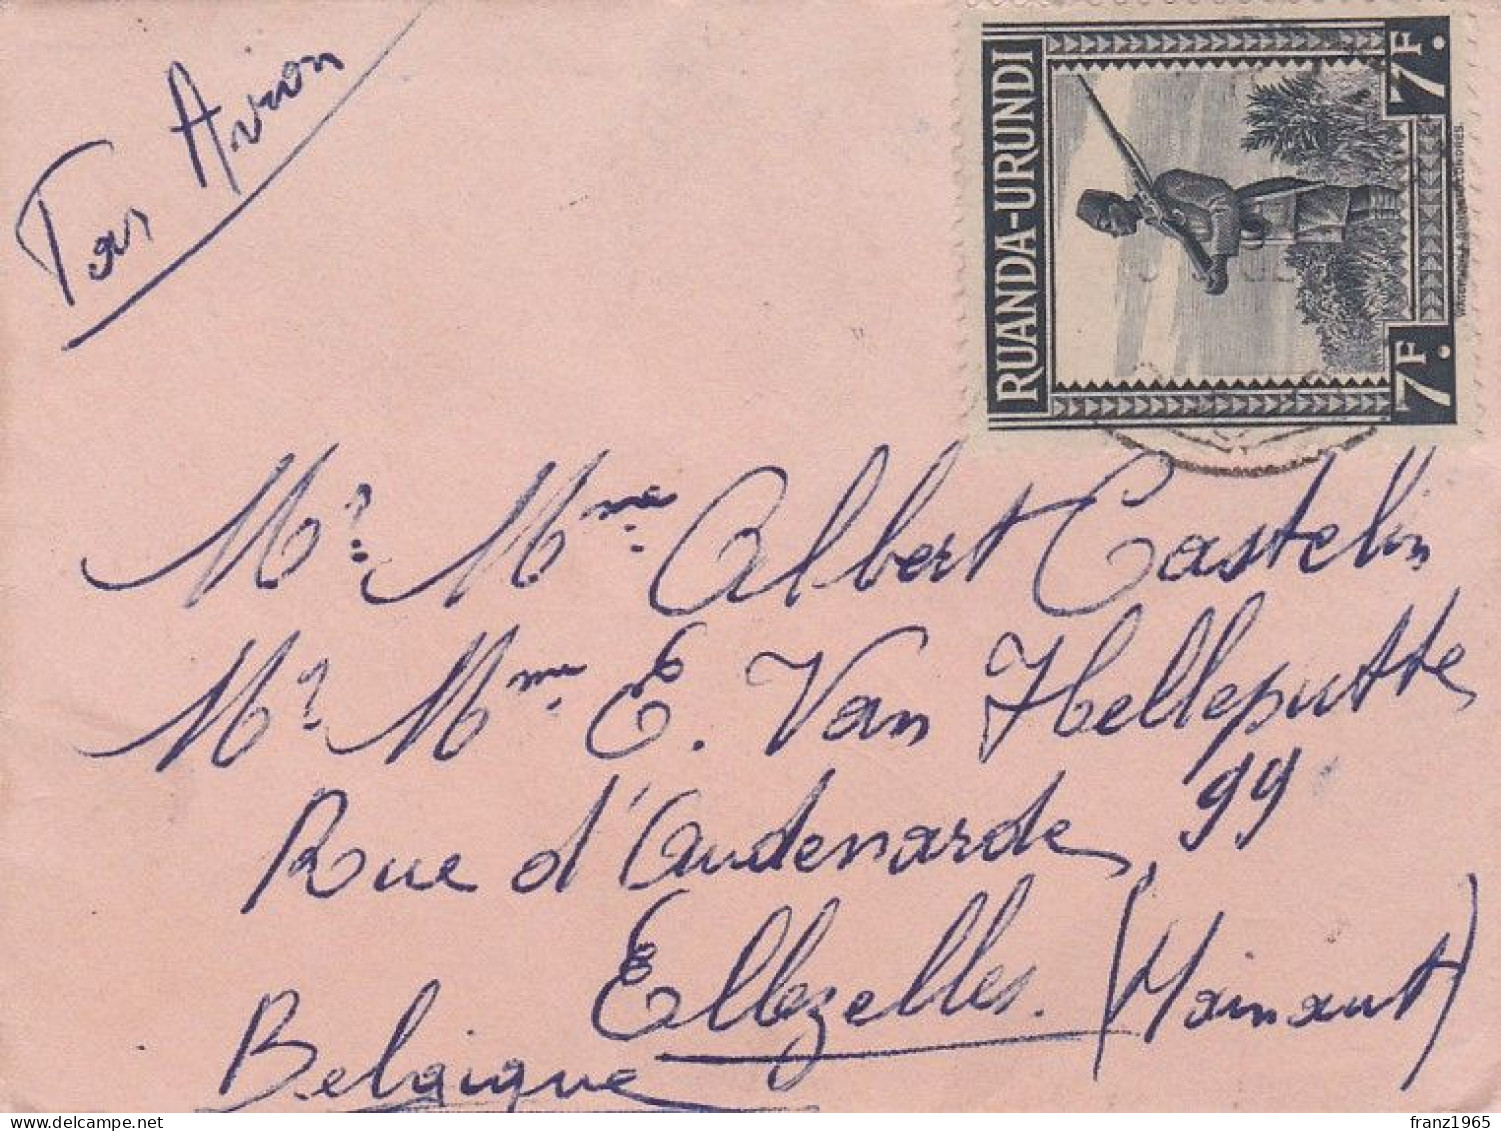 Par Avion
RUANDA-URUNDI
7F.
7F.
Mr. Mme Albert Castelin
Mr. Mme E. Van Helleputte
Rue d'Audenarde, 99
Ellezelles. (Hainaut)
Belgique
franz1965